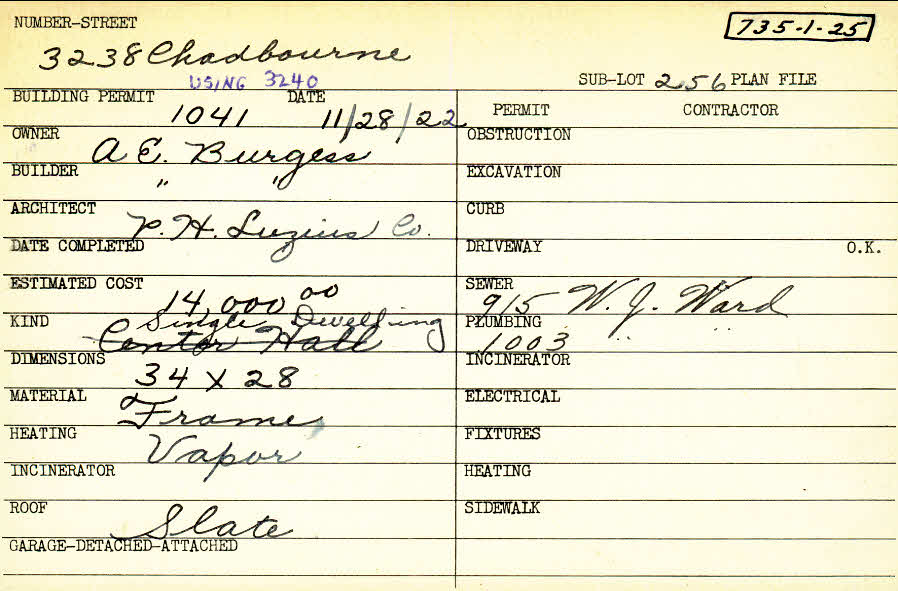 NUMBER-STREET
735-1-25
3238 Chadbourne
USING 3240
SUB-LOT 256 PLAN FILE
BUILDING PERMIT 1041 DATE 11/28/22
PERMIT CONTRACTOR
OWNER A E. Burgess
OBSTRUCTION
BUILDER " "
EXCAVATION
ARCHITECT P. H. Luzius Co.
CURB
DATE COMPLETED
DRIVEWAY O.K.
ESTIMATED COST 14,000 00
SEWER 915 W. J. Ward
KIND Single Dwelling
Center Hall
PLUMBING 1003 " "
DIMENSIONS 34 X 28
INCINERATOR
MATERIAL Frame
ELECTRICAL
HEATING Vapor
FIXTURES
INCINERATOR
HEATING
ROOF Slate
SIDEWALK
GARAGE-DETACHED-ATTACHED